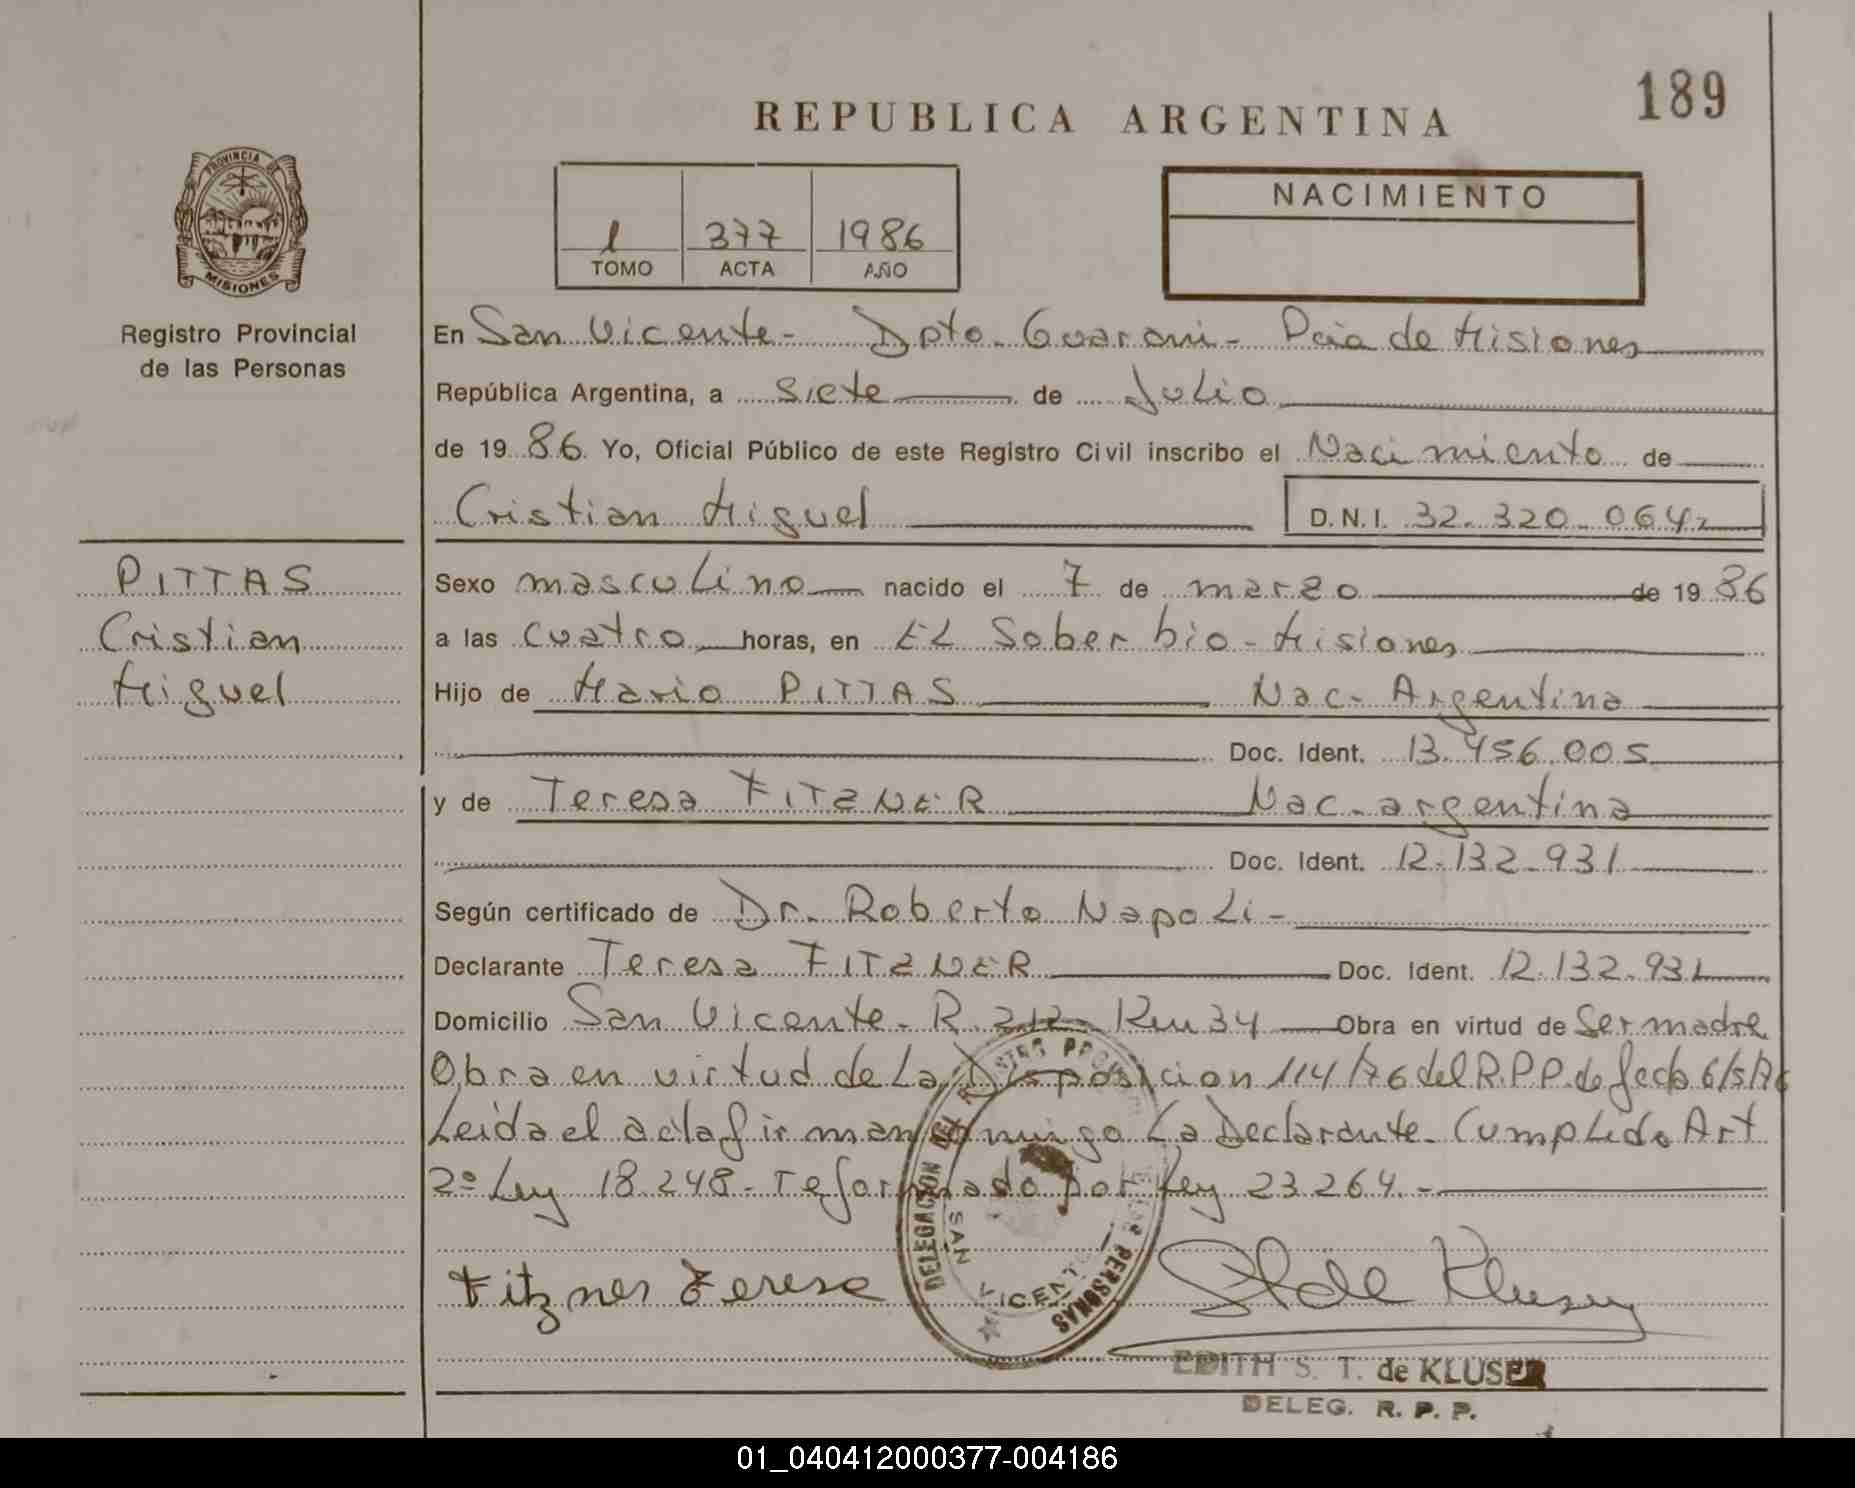 189
REPUBLICA ARGENTINA
PROVINCIA DE
MISIONES
Registro Provincial
de las Personas
1 377 1986
TOMO ACTA AÑO
NACIMIENTO
En San Vicente - Dpto. Guarani - Pcia de Misiones
República Argentina, a siete de Julio
de 19 86 Yo, Oficial Público de este Registro Civil inscribo el Nacimiento de
Cristian Miguel D.N.I. 32.320.064
PITTAS
Cristian
Miguel
Sexo masculino nacido el 7 de marzo de 19 86
a las cuatro horas, en EL Soberbio - Misiones
Hijo de Mario PITTAS Nac. Argentina
Doc. Ident. 13.456.005
y de Teresa FITZNER Nac. argentina
Doc. Ident. 12.132.931
Según certificado de Dr. Roberto Napoli -
Declarante Teresa FITZNER Doc. Ident. 12.132.931
Domicilio San Vicente - R. 212 - Km 34 Obra en virtud de ser madre
Obra en virtud de la Disposicion 114/76 del R.P.P. de fecha 6/5/76
Leida el acta firman conmigo La Declarante. Cumplido Art
2º Ley 18.248 - reformado por Ley 23.264. -
DELEGACION DEL REGISTRO PROVINCIAL DE LAS PERSONAS
SAN VICENTE
Fitzner Teresa
EDITH S. T. de KLUSER
DELEG. R. P. P.
01_040412000377-004186